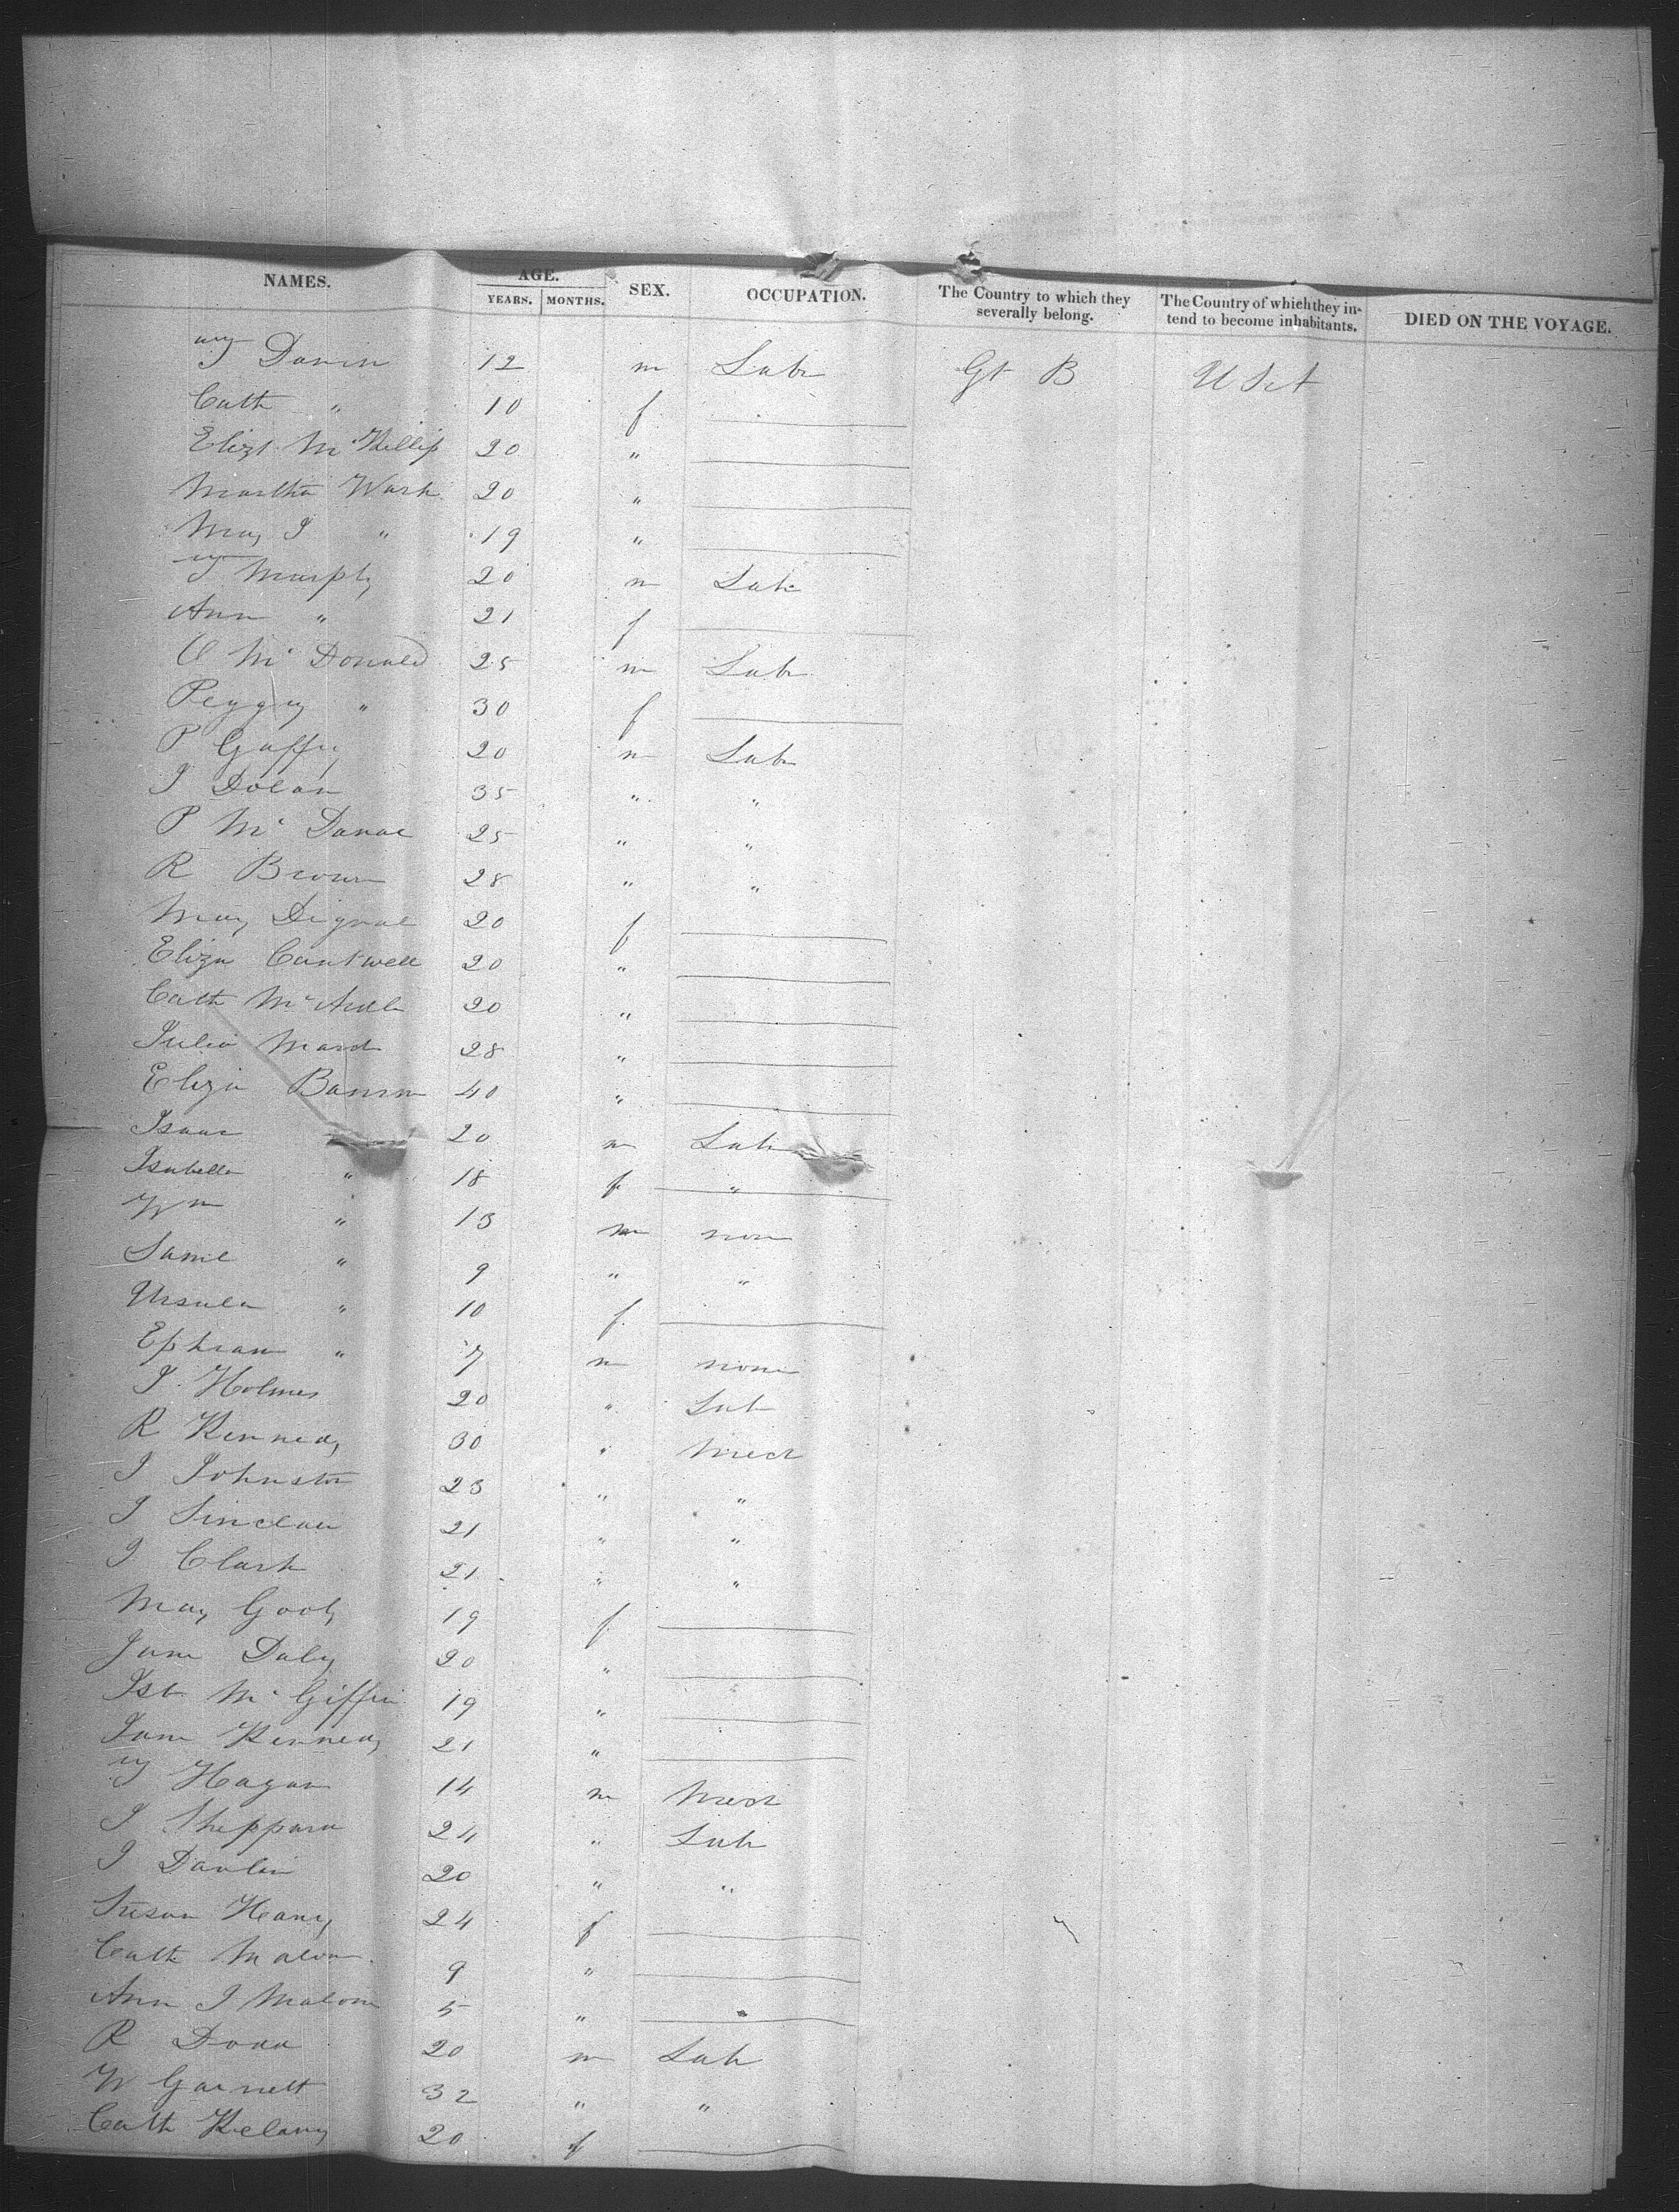 NAMES. AGE. YEARS. MONTHS. SEX. OCCUPATION. The Country to which they severally belong. The Country of which they intend to become inhabitants. DIED ON THE VOYAGE.
12 m Lab Gt B U S A
Cath " 10 f
Elizt McKillip 20 "
Martha Wark 20 "
May J " 19 "
Murphy 20 m Lab
Ann " 21 f
McDonald 25 m Lab
Peggy " 30 f
P Gaffy 20 m Lab
J Dolan 35 " "
P Mc 25 " "
R Brown 28 " "
May Dignal 20 f
Eliza Cantwell 20 "
Cath McArdle 20 "
Julia Ward 28 "
Eliza 40 "
Isaac 20 m Lab
Isabella " 18 f "
Wm " 13 m non
Saml " 9 " "
Ursula " 10 f
Ephram " 7 m none
J Holmes 20 " Lab
R Kennedy 30 " Mech
J Johnston 23 " "
J Sinclair 21 " "
J Clark 21 " "
May 19 f
Jane Daly 20 "
Isb McGiffin 19 "
Jane Kennedy 21 "
Hagan 14 m Mech
J Sheppard 24 " Lab
J Danlin 20 " "
Susan Heany 24 f
Cath Malon 9 "
Ann J Malone 5 " "
R Dodd 20 m Lab
W Garnett 32 " "
Cath Kelany 20 f